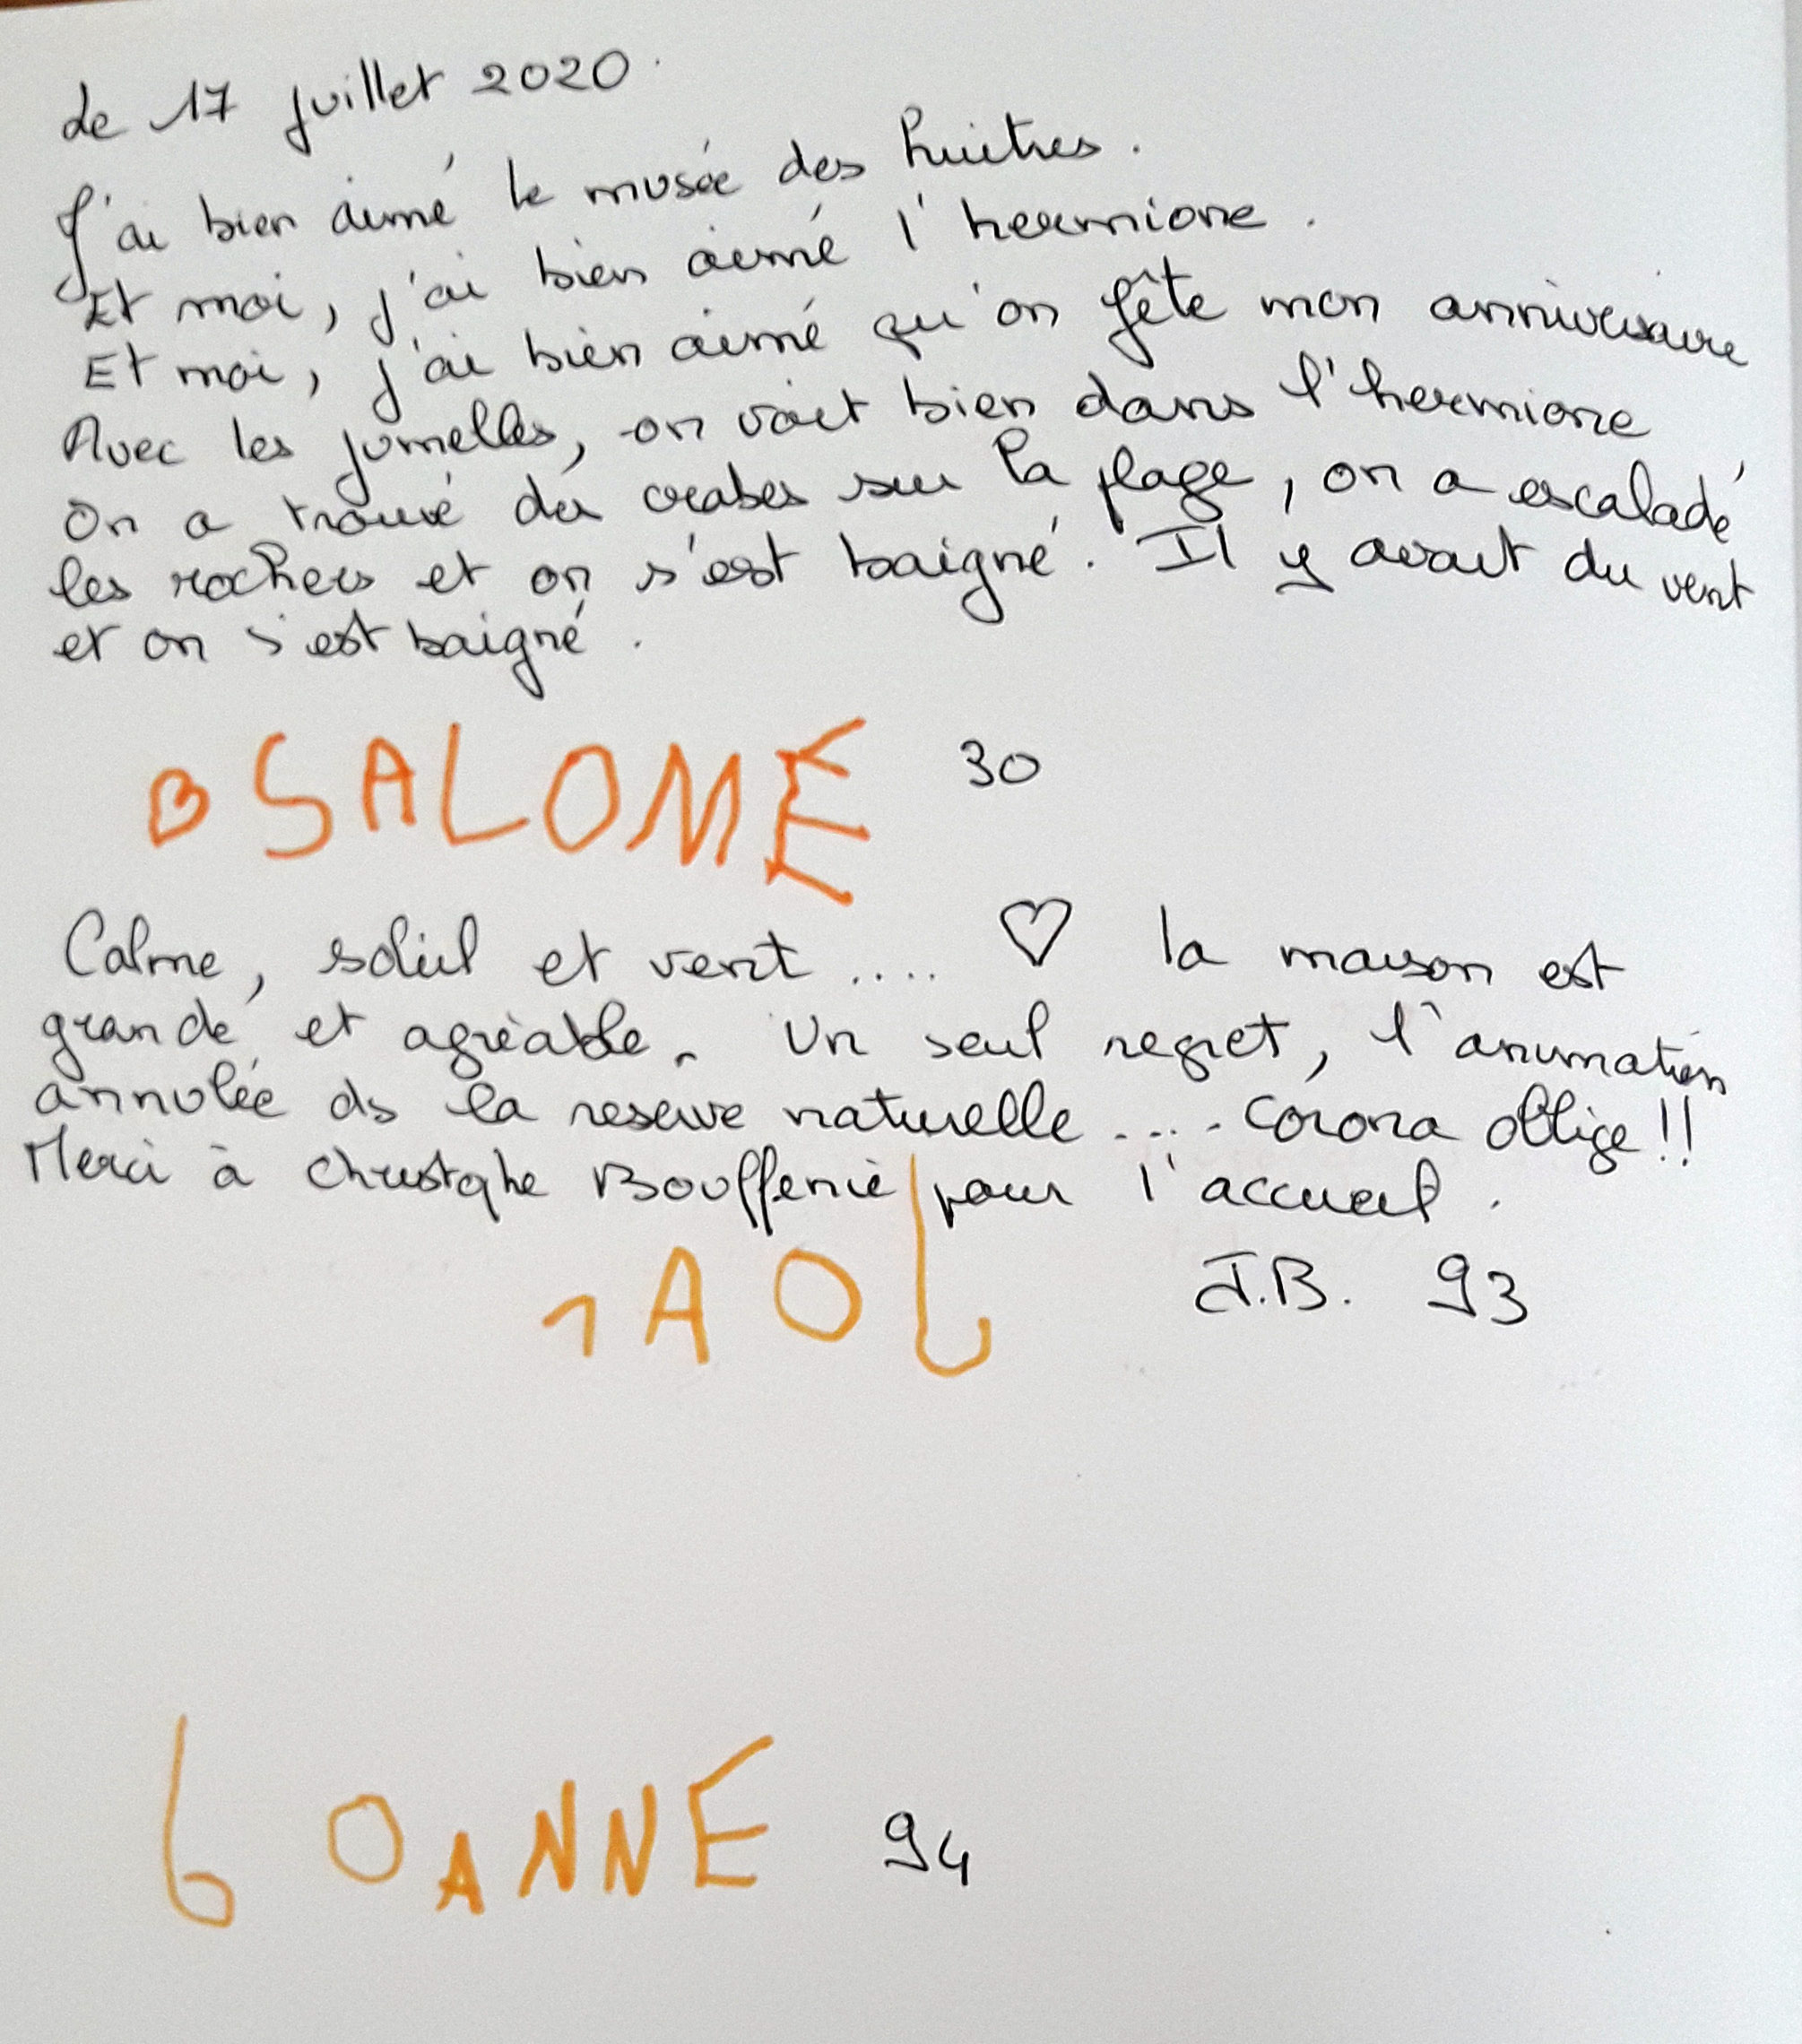 Le 17 juillet 2020.
J'ai bien aimé le musée des huitres.
Et moi, j'ai bien aimé l'hermione.
Et moi, j'ai bien aimé qu'on fête mon anniversaire
Avec les jumelles, on voit bien dans l'hermione
On a trouvé des crabes sur la plage, on a escaladé
les rochers et on s'est baigné. Il y avait du vent
et on s'est baigné.
SALOMÉ 30
Calme, soleil et vent .... ♡ la maison est
grande et agréable. Un seul regret, l'animation
annulée ds la reserve naturelle .... corona oblige !!
Merci à Christophe pour l'accueil.
J.B. 93
OANNE 94